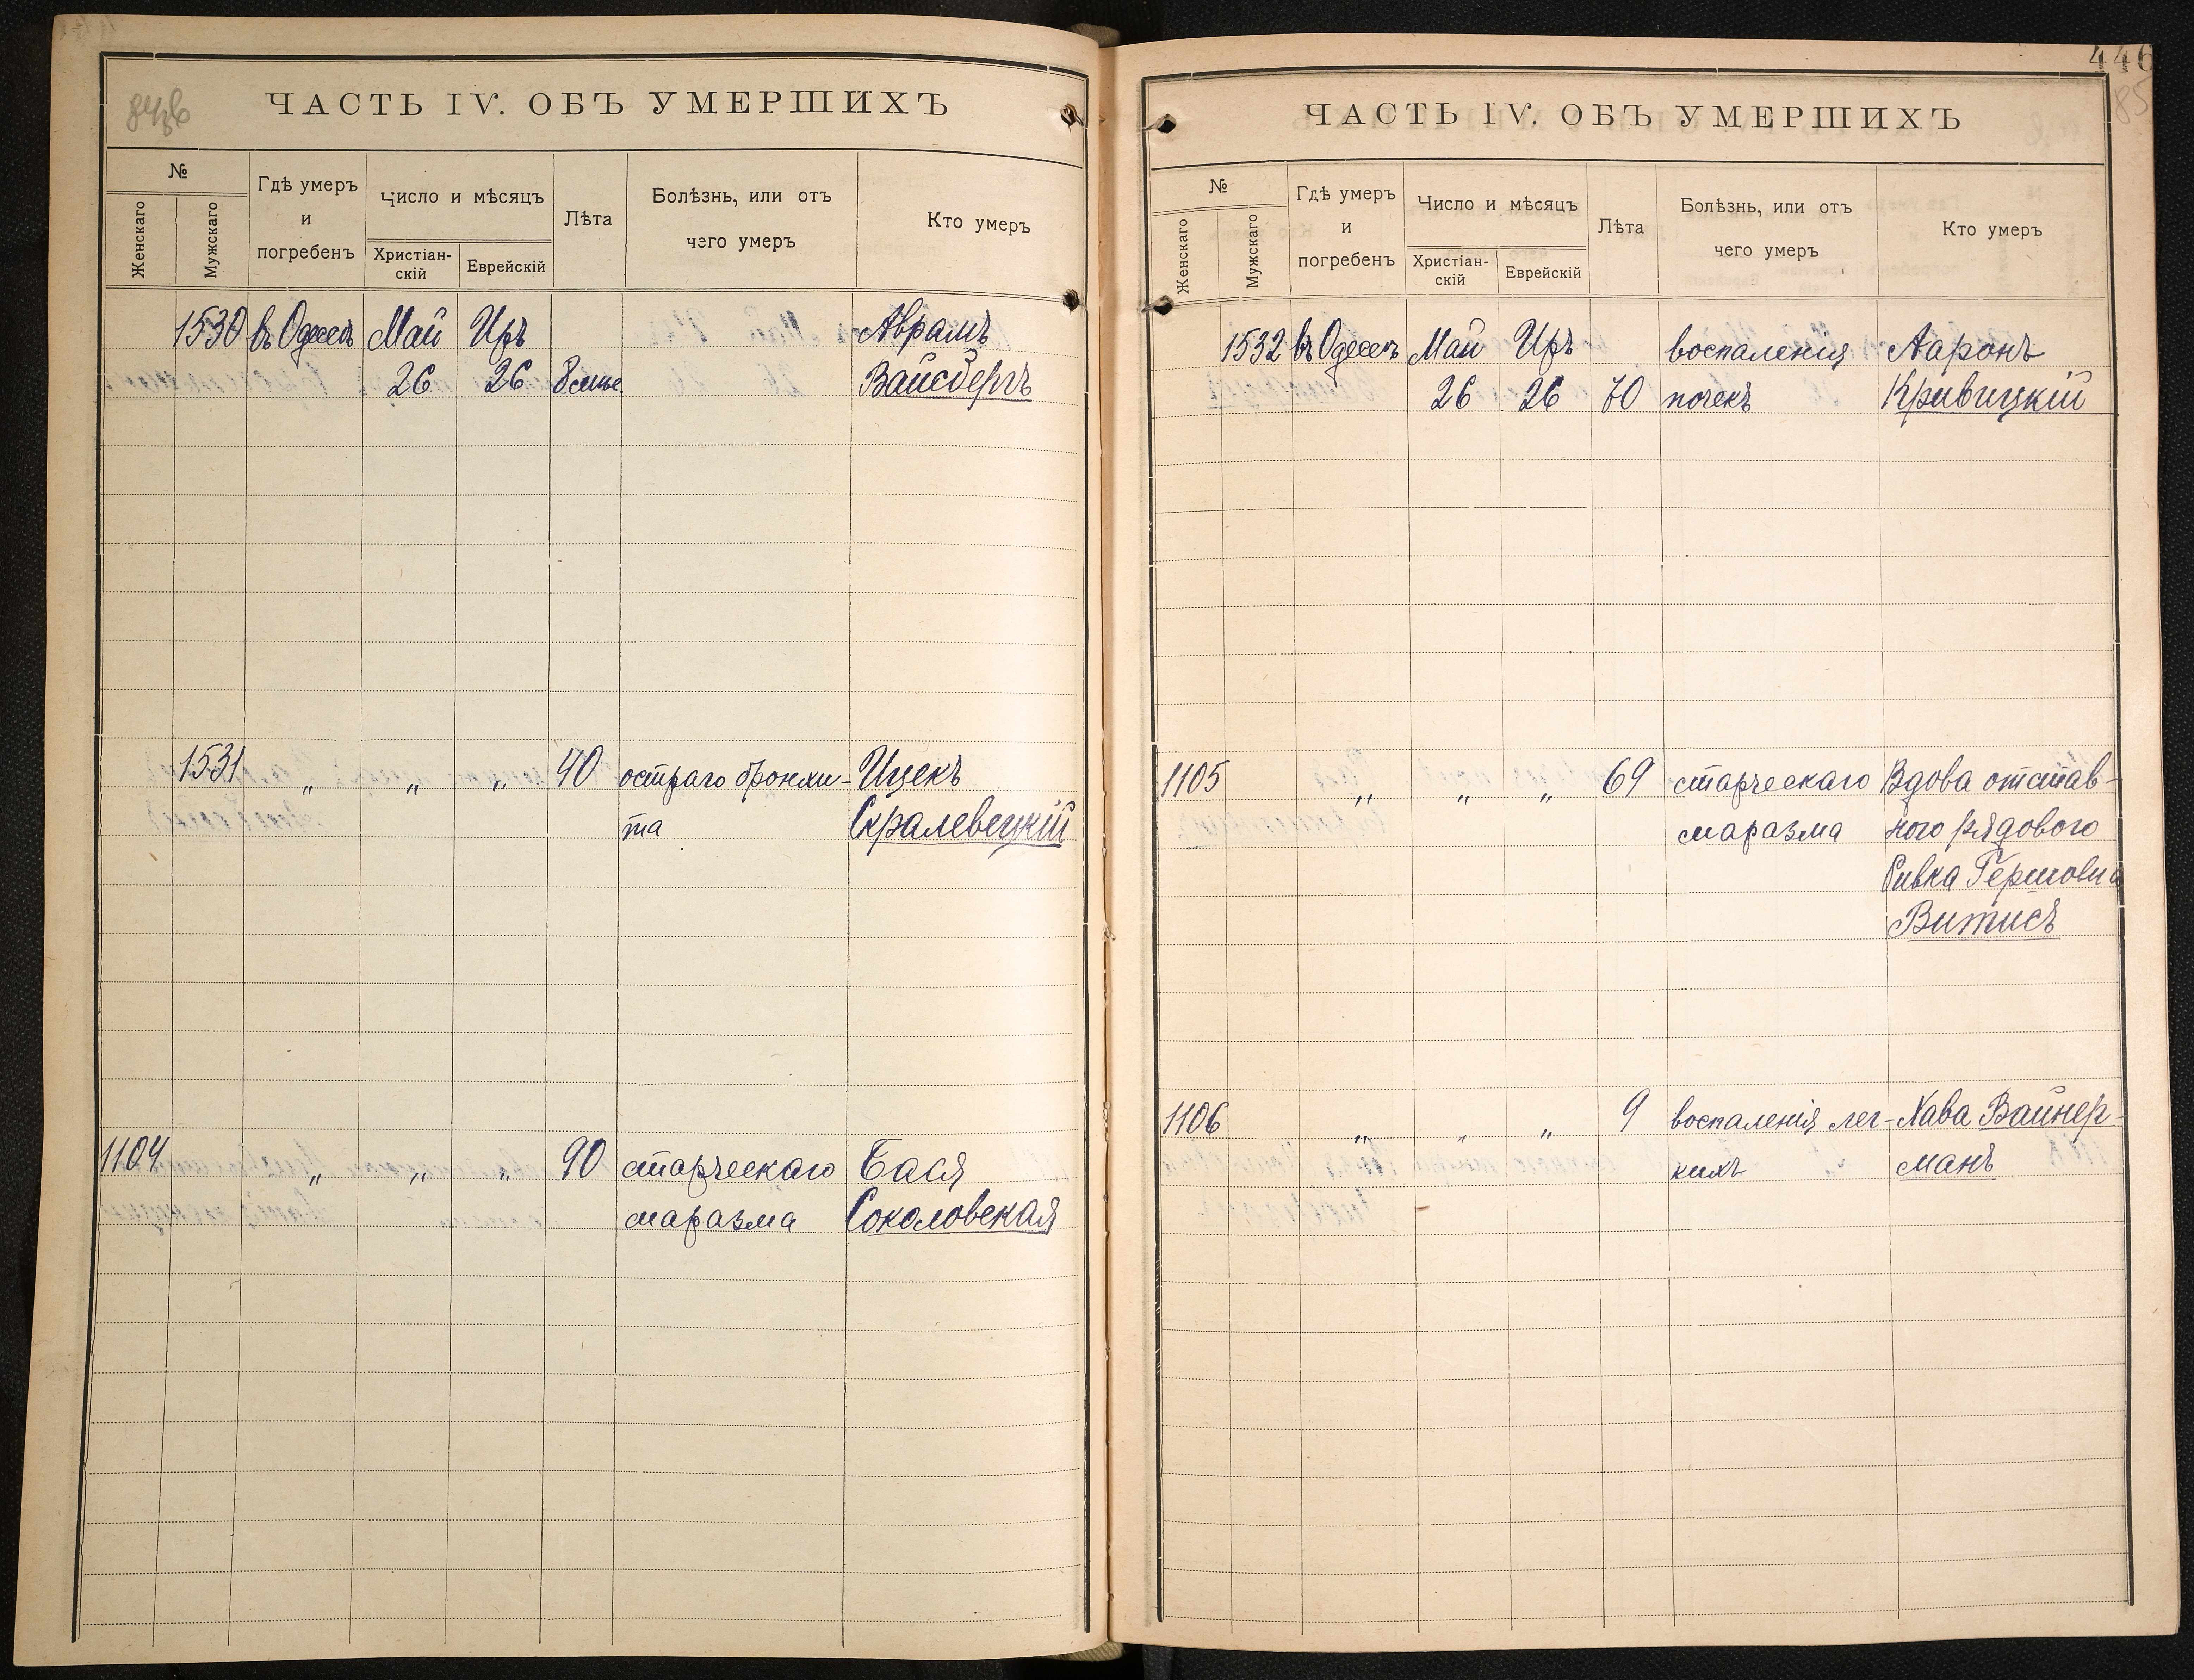 446
85
ЧАСТЬ IV. ОБЪ УМЕРШИХЪ
№
Женскаго
Мужскаго
Гдѣ умеръ
и
погребенъ
Число и мѣсяцъ
Христіан-
скій
Еврейскій
Лѣта
Болѣзнь, или отъ
чего умеръ
Кто умеръ
1530 въ Одессѣ Май Иръ Аврамъ
26 26 8 мѣс Вайсбергъ
1531 " " " 40 остраго бронхи- Ицекъ
та Скралевецкій
1104 " " " 90 старческаго Бася
маразма Соколовская
ЧАСТЬ IV. ОБЪ УМЕРШИХЪ
№
Женскаго
Мужскаго
Гдѣ умеръ
и
погребенъ
Число и мѣсяцъ
Христіан-
скій
Еврейскій
Лѣта
Болѣзнь, или отъ
чего умеръ
Кто умеръ
1532 въ Одессѣ Май Иръ воспаленія Ааронъ
26 26 70 почекъ Кривицкій
1105 " " " 69 старческаго Вдова отстав-
маразма ного рядового
Ривка Гершовна
Витисъ
1106 " " " 9 воспаленія лег- Хава Вайнер-
кихъ манъ